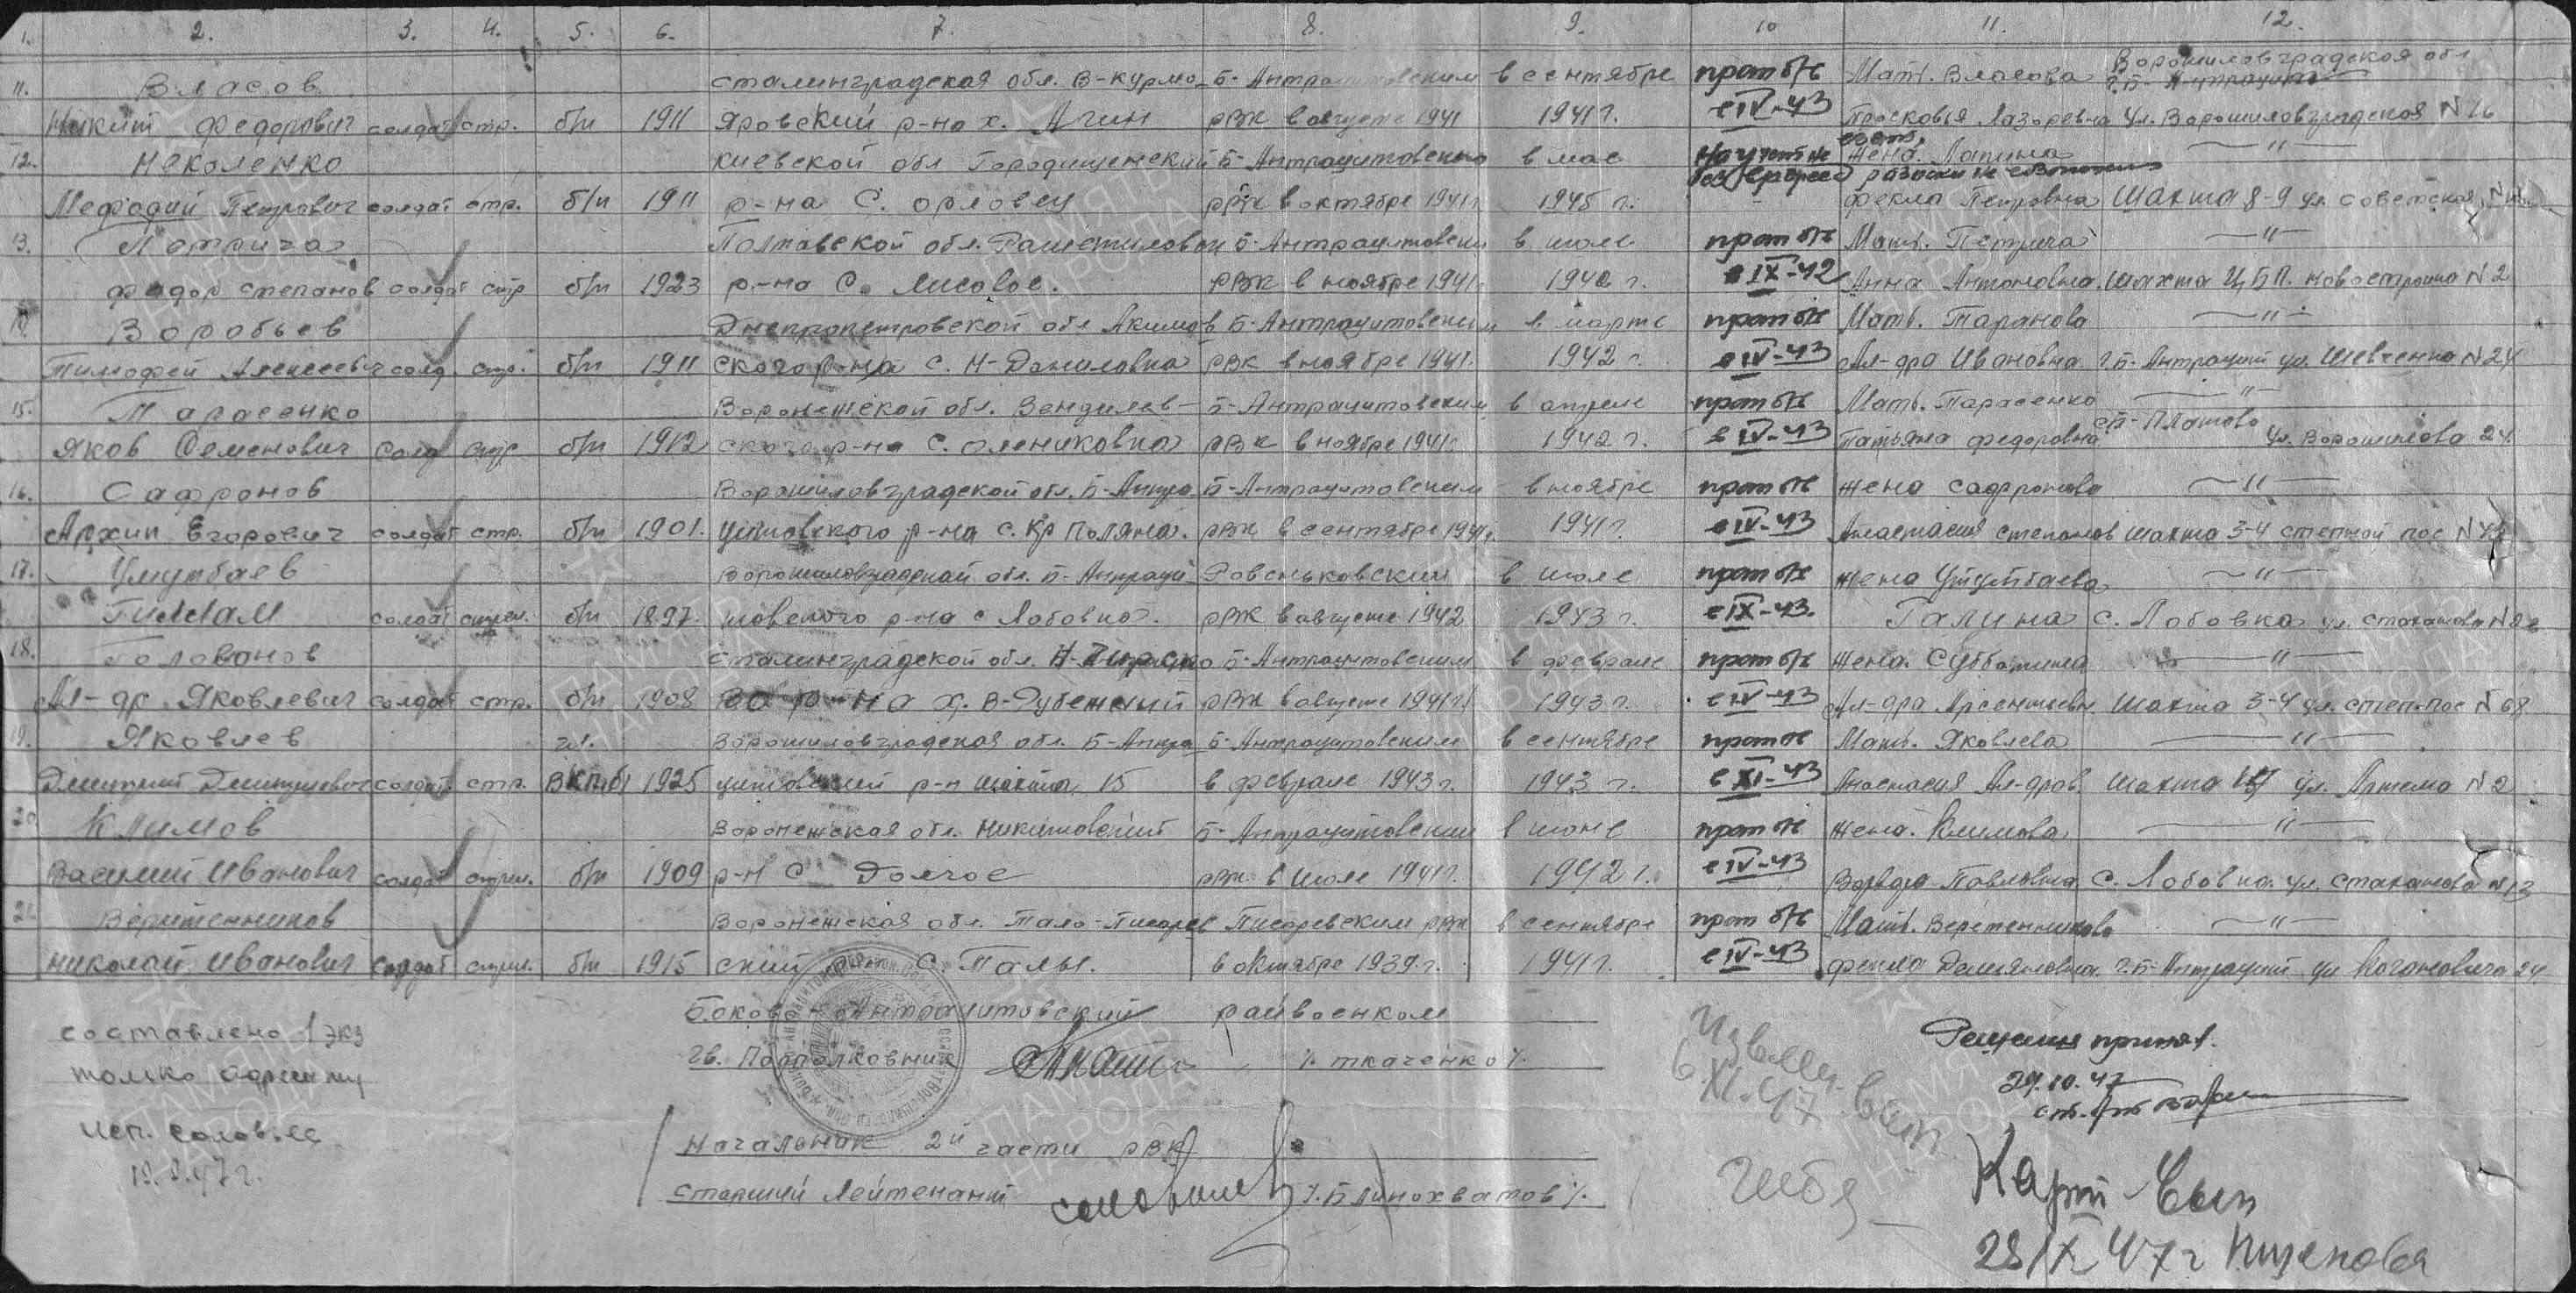 1. 2. 3. 4. 5. 6. 7. 8. 9. 10 11. 12.
11. Власов Сталинградская обл. В-Курмо- Б-Антрацитовским в сентябре проп б/в Мать. Власова Ворошиловградская обл
г.Б-Антрацит
Никит Федорович солдат стр. б/п 1911 Яровский р-на х. Агин РВК в августе 1941 1941 г. с IV-43 Прасковья Лазоревна ул. Ворошиловградская N 26
12. Неколенко Киевской обл Городищенский Б-Антрацитовским в мае Жена. Лапина —"—
Мефодий Петрович солдат стр. б/п 1911 р-на С. Орловец РВК в октябре 1941 г. 1945 г. Фекла Петровна Шахта 8-9 ул. Советская
13. Петрича Полтавской обл. Решетиловск Б-Антрацитовским в июле проп б/в Мать. Петрича —"—
Федор Степанов солдат стр б/п 1923 р-на С. Лисовое. РВК в ноябре 1941 г. 1942 г. с IX-42 Анна Антоновна Шахта ЦБП. Новостройка N 2
14. Воробьев Днепропетровской обл Акимов Б-Антрацитовским в марте проп б/в Мать. Таранова —"—
Тимофей Алексеевич солд. стр. б/п 1911 ского р-на С. Н-Даниловка РВК в ноябре 1941. 1942 г. с IV-43 Ал-дра Ивановна г.Б-Антрацит ул. Шевченко N 24
15. Тарасенко Воронежской обл. Б-Антрацитовским в апреле проп б/в Мать. Тарасенко —"—
ст-Платово
Яков Семенович солд стр б/п 1912 ского р-на С. Олениковка РВК в ноябре 1941 г. 1942 г. с IV-43 Татьяна Федоровна ул. Ворошилова 24.
16. Сафронов Ворошиловградской обл. Б-Антра Б-Антрацитовским в ноябре проп б/в Жена Сафронова —"—
Архип Егорович солдат стр. б/п 1901. цитовского р-на с. Кр Поляна. РВК в сентябре 1941 г. 1941 г. с IV-43 Анастасия Степанов Шахта 3-4 степной пос
17. Умутбаев Ворошиловградской обл. Б-Антраци Ровеньковским в июле проп б/в Жена Утумбаева —"—
Гиммам солдат стрел. б/п 1897. товского р-на с Лобовка. РВК в августе 1942 1943 г. с IX-43. Галина С. Лобовка ул. Стаханова
18. Голованов Сталинградской обл. Б-Антрацитовским в феврале проп б/в Жена. Субботина —"—
Ал-др Яковлевич солдат стр. б/п 1908 го р-на х. В-Рубежный РВК в августе 1941 г. 1943 г. с IV-43 Ал-дра Арсентьевн. Шахта 3-4 ул. степ-пос N 68
19. Яковлев чл. Ворошиловградская обл. Б-Антра Б-Антрацитовским в сентябре проп б/в Мать. Яковлева —"—
Дмитрий Дмитриевич солдат. стр. ВКП(б) 1925 цитовский р-н шахта 15 в феврале 1943 г. 1943 г. с XI-43 Анастасия Ал-дров. Шахта ул. Артема N 2
20. Климов Воронежская обл. Никитовский Б-Антрацитовским в июне проп б/в Жена. Климова —"—
Василий Иванович солдат стрел. б/п 1909 р-н С Долгое РВК в июле 1941 г. 1942 г. с IV-43 Варвара Павловна С. Лобовка. ул. Стаханова N 13
21. Веретенников Воронежская обл. Тало-Писарев Писаревским РВК в сентябре проп б/в Мать. Веретенникова —"—
Николай Иванович солдат стрел. б/п 1915 ский р-н С. Талы. в октябре 1939 г. 1941 г. с IV-43 Фекла Демьяновна. г.Б-Антрацит ул Кагановича 24.
Боково-Антрацитовский райвоенком
Гв. Подполковник /Ткаченко/
Начальник 2й части РВК
Старший Лейтенант /Блинохватов/.
составлено 1 экз
только адресату
исп. Соловьев
Решение принял.
29.10.47
Извещ. Выс
6.XI.47
Карт-Вып
28/X 47 г